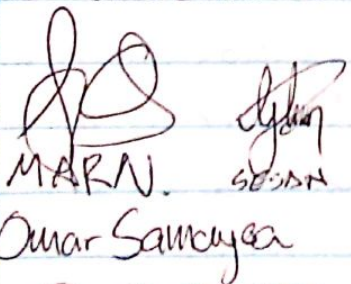 MARN. SESAN
Omar Samayoa